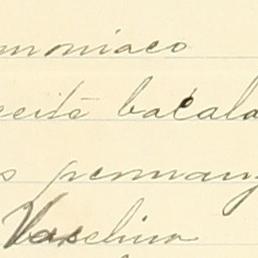 moniaco
ceite bacala
s permang
Vaselina